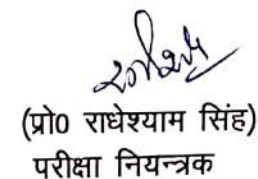 (प्रो0 राधेश्याम सिंह)
परीक्षा नियन्त्रक